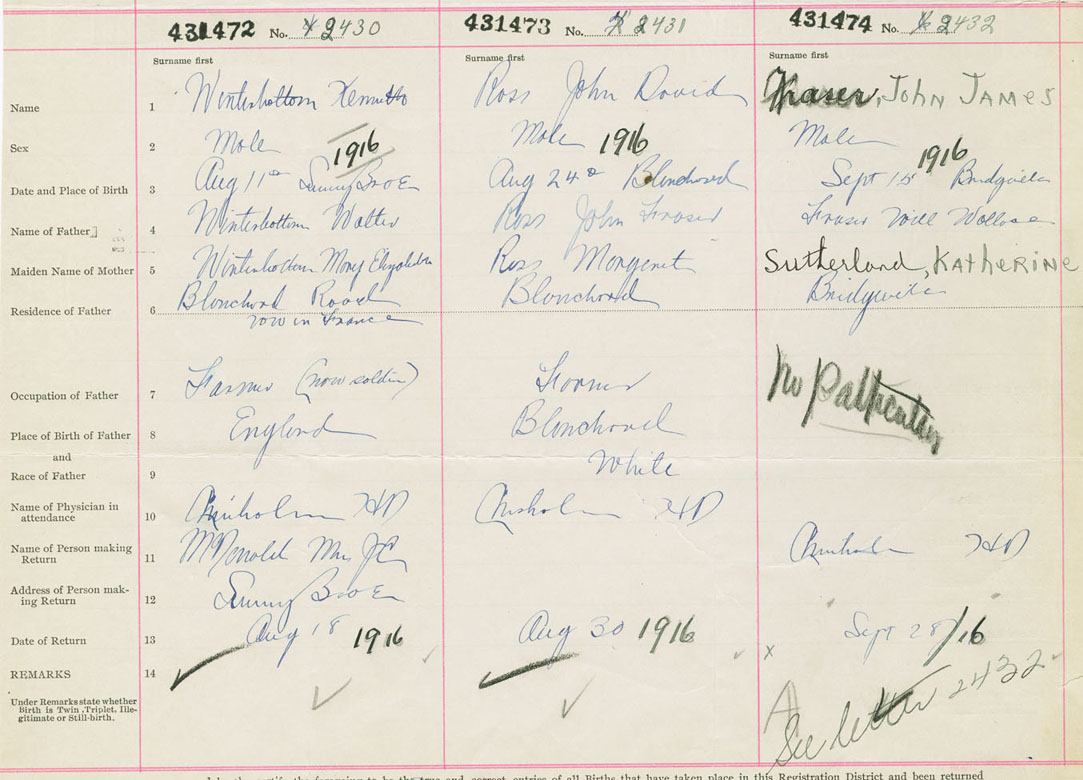 431472 No. 2430
431473 No. 2431
431474 No. 2432
Surname first
Surname first
Surname first
Name 1 Winterbottom Kenneth
Ross John David
Fraser, John James
Sex 2 Male
Male
Male
1916
1916
1916
Date and Place of Birth 3 Aug 11th Sunny Brae
Aug 24th Blanchard
Sept 15 Bridgeville
Name of Father 4 Winterbottom Walter
Ross John Fraser
Fraser Will Wallace
Maiden Name of Mother 5 Winterbottom Mary Elizabeth
Ross Margaret
Sutherland, Katherine
Residence of Father 6 Blanchard Road
now in France
Blanchard
Bridgeville
Occupation of Father 7 Farmer (now soldier)
Farmer
Place of Birth of Father 8 England
Blanchard
and
Race of Father 9
White
Name of Physician in
attendance 10 Chisholm HD
Chisholm HD
Name of Person making
Return 11 McDonald Mrs
Chisholm HD
Address of Person mak-
ing Return 12 Sunny Brae
Date of Return 13 Aug 18 1916
Aug 30 1916
Sept 28/16
x
REMARKS 14
Under Remarks state whether
Birth is Twin, Triplet, Ille-
gitimate or Still-birth.
A
See letter 2432
the foregoing to be the true and correct entries of all Births that have taken place in this Registration District and been returned